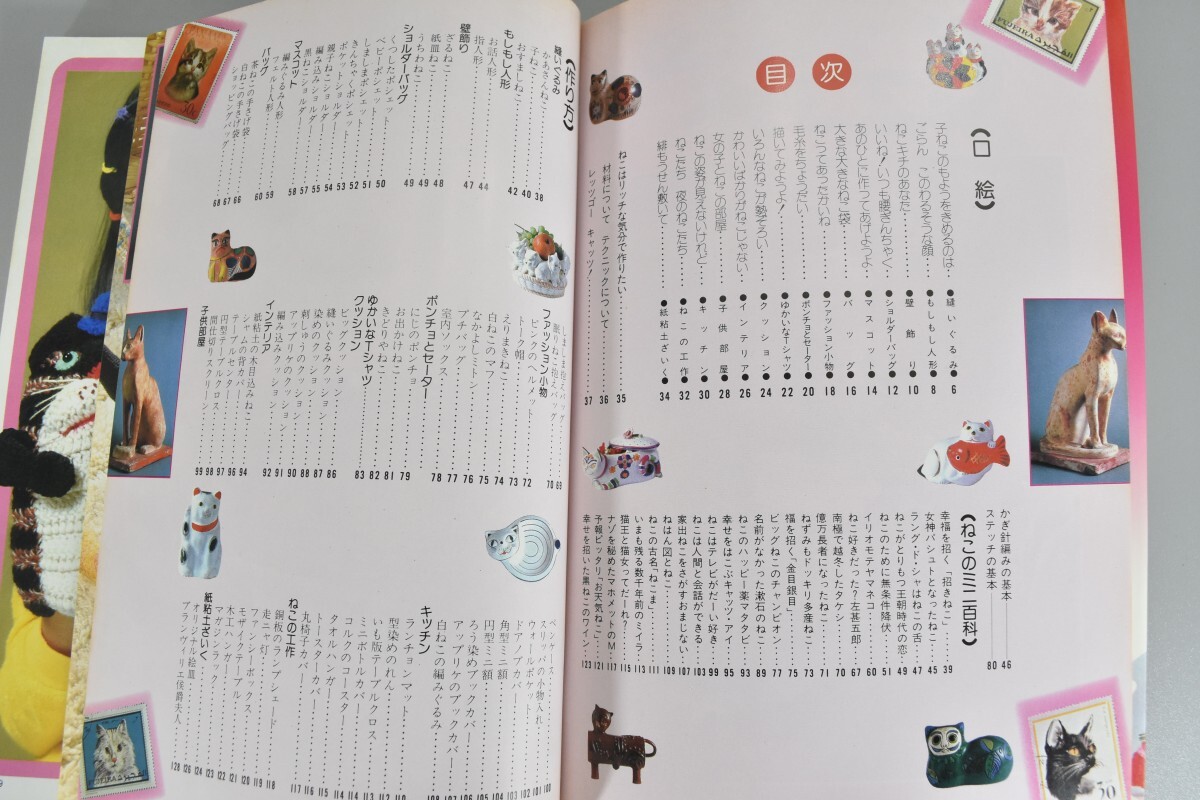 目次
《口絵》
子ねこのもようをきめるのは………●縫いぐるみ●6
ごらん このわるそうな顔………●もしもし人形●8
ねこキチのあなた………●壁飾り●10
いいね!いつも腰ぎんちゃく………●ショルダーバッグ●12
あのひとに作ってあげようよ………●マスコット●14
大きな大きなねこ袋………●バッグ●16
ねこってあったかいね………●ファッション小物●18
毛糸をちょうだい………●ポンチョとセーター●20
描いてみようよ!………●ゆかいなTシャツ●22
いろんなねこが勢ぞろい………●クッション●24
かわいいばかりがねこじゃない………●インテリア●26
女の子とねこの部屋………●子供部屋●28
ねこの姿が見えないけれど………●キッチン●30
ねこたち 夜のねこたち………●ねこの工作●32
緋もうせん敷いて………●紙粘土ざいく●34
ねこはリッチな気分で作りたい………35
材料について テクニックについて………36
レッツゴー キャッツ!………37
かぎ針編みの基本………46
ステッチの基本………80
《ねこのミニ百科》
幸福を招く「招きねこ」………39
女神バシュトとなったねこ………45
ラング・ド・シャはねこの舌………47
ねこがとりもつ王朝時代の恋………49
ねこのために無条件降伏………51
イリオモテヤマネコ………60
ねこ好きだった?左甚五郎………67
南極で越冬したタケシ………70
億万長者になったねこ………71
ねずみもドッキリ多産ねこ………75
福を招く「金目銀目」………77
ビッグねこのチャンピオン………89
名前がなかった漱石のねこ………93
ねこのハッピー薬マタタビ………94
幸せをはこぶキャッツ・アイ………95
ねこはテレビがだーい好き………99
ねこは人間と会話ができる………103
家出ねこをさがすおまじない………107
ねはん図とねこ………109
ねこの古名「ねこま」………111
いまも残る数千年前のミイラ………113
猫王と猫女ってだーれ?………115
ナゾを秘めたマホメットのM………117
予報ピッタリ「お天気ねこ」………121
幸せを招いた黒ねこのワイン………123
《作り方》
縫いぐるみ
かあさんねこ………38
子ねこ………40
おすましねこ………42
もしもし人形
お話人形………44
指人形………47
壁飾り
ざるねこ………48
紙皿ねこ………49
うちわねこ………49
ショルダーバッグ
くつしたポシェット………50
ベビーポシェット………51
しましまポシェット………52
きんちゃくポシェット………53
ポケットショルダー………54
親子ねこショルダー………55
編み込みショルダー………57
黒ねこショルダー………58
マスコット
編みぐるみ人形………59
フェルト人形………60
バッグ
茶ねこの手さげ袋………66
白ねこの手さげ袋………67
ショッピングバッグ………68
しましま抱えバッグ………69
眠りねこ抱えバッグ………70
ファッション小物
ピンクのヘルメット………72
トーク帽………73
えりまきねこ………74
白ねこのマフ………75
なかよしミトン………76
プチバッグ………77
室内ソックス………78
ポンチョとセーター
にじのポンチョ………79
お出かけねこ………81
きどりやねこ………82
ゆかいなTシャツ………83
クッション
ビッグクッション………86
縫いぐるみクッション………87
染めのクッション………88
刺しゅうのクッション………90
アップリケのクッション………91
編み込みクッション………92
インテリア
紙粘土の木目込みねこ………94
シャムの背カバー………96
テーブルセンター………97
円型テーブルクロス………98
間仕切りスクリーン………99
子供部屋
ペンケース………100
スリッパの小物入れ………101
ウォールポケット………102
ドアノブカバー………103
角型ミニ額………104
円型ミニ額………105
ろう染めブックカバー………106
アップリケのブックカバー………107
白ねこの編みぐるみ………108
キッチン
ランチョンマット………110
型染めのれん………112
いも版テーブルクロス………113
ミニボトルカバー………114
コルクのコースター………114
タオルハンガー………115
トースターカバー………116
丸椅子カバー………117
ねこの工作
銅板のランプシェード………118
走ニャ灯………119
ファンシーボックス………120
モザイクテーブル………121
木工ハンガー………122
マガジンラック………123
紙粘土ざいく
オリジナル絵皿………124
ブランヴィリエ侯爵夫人………126
128
FUJEIRA
30